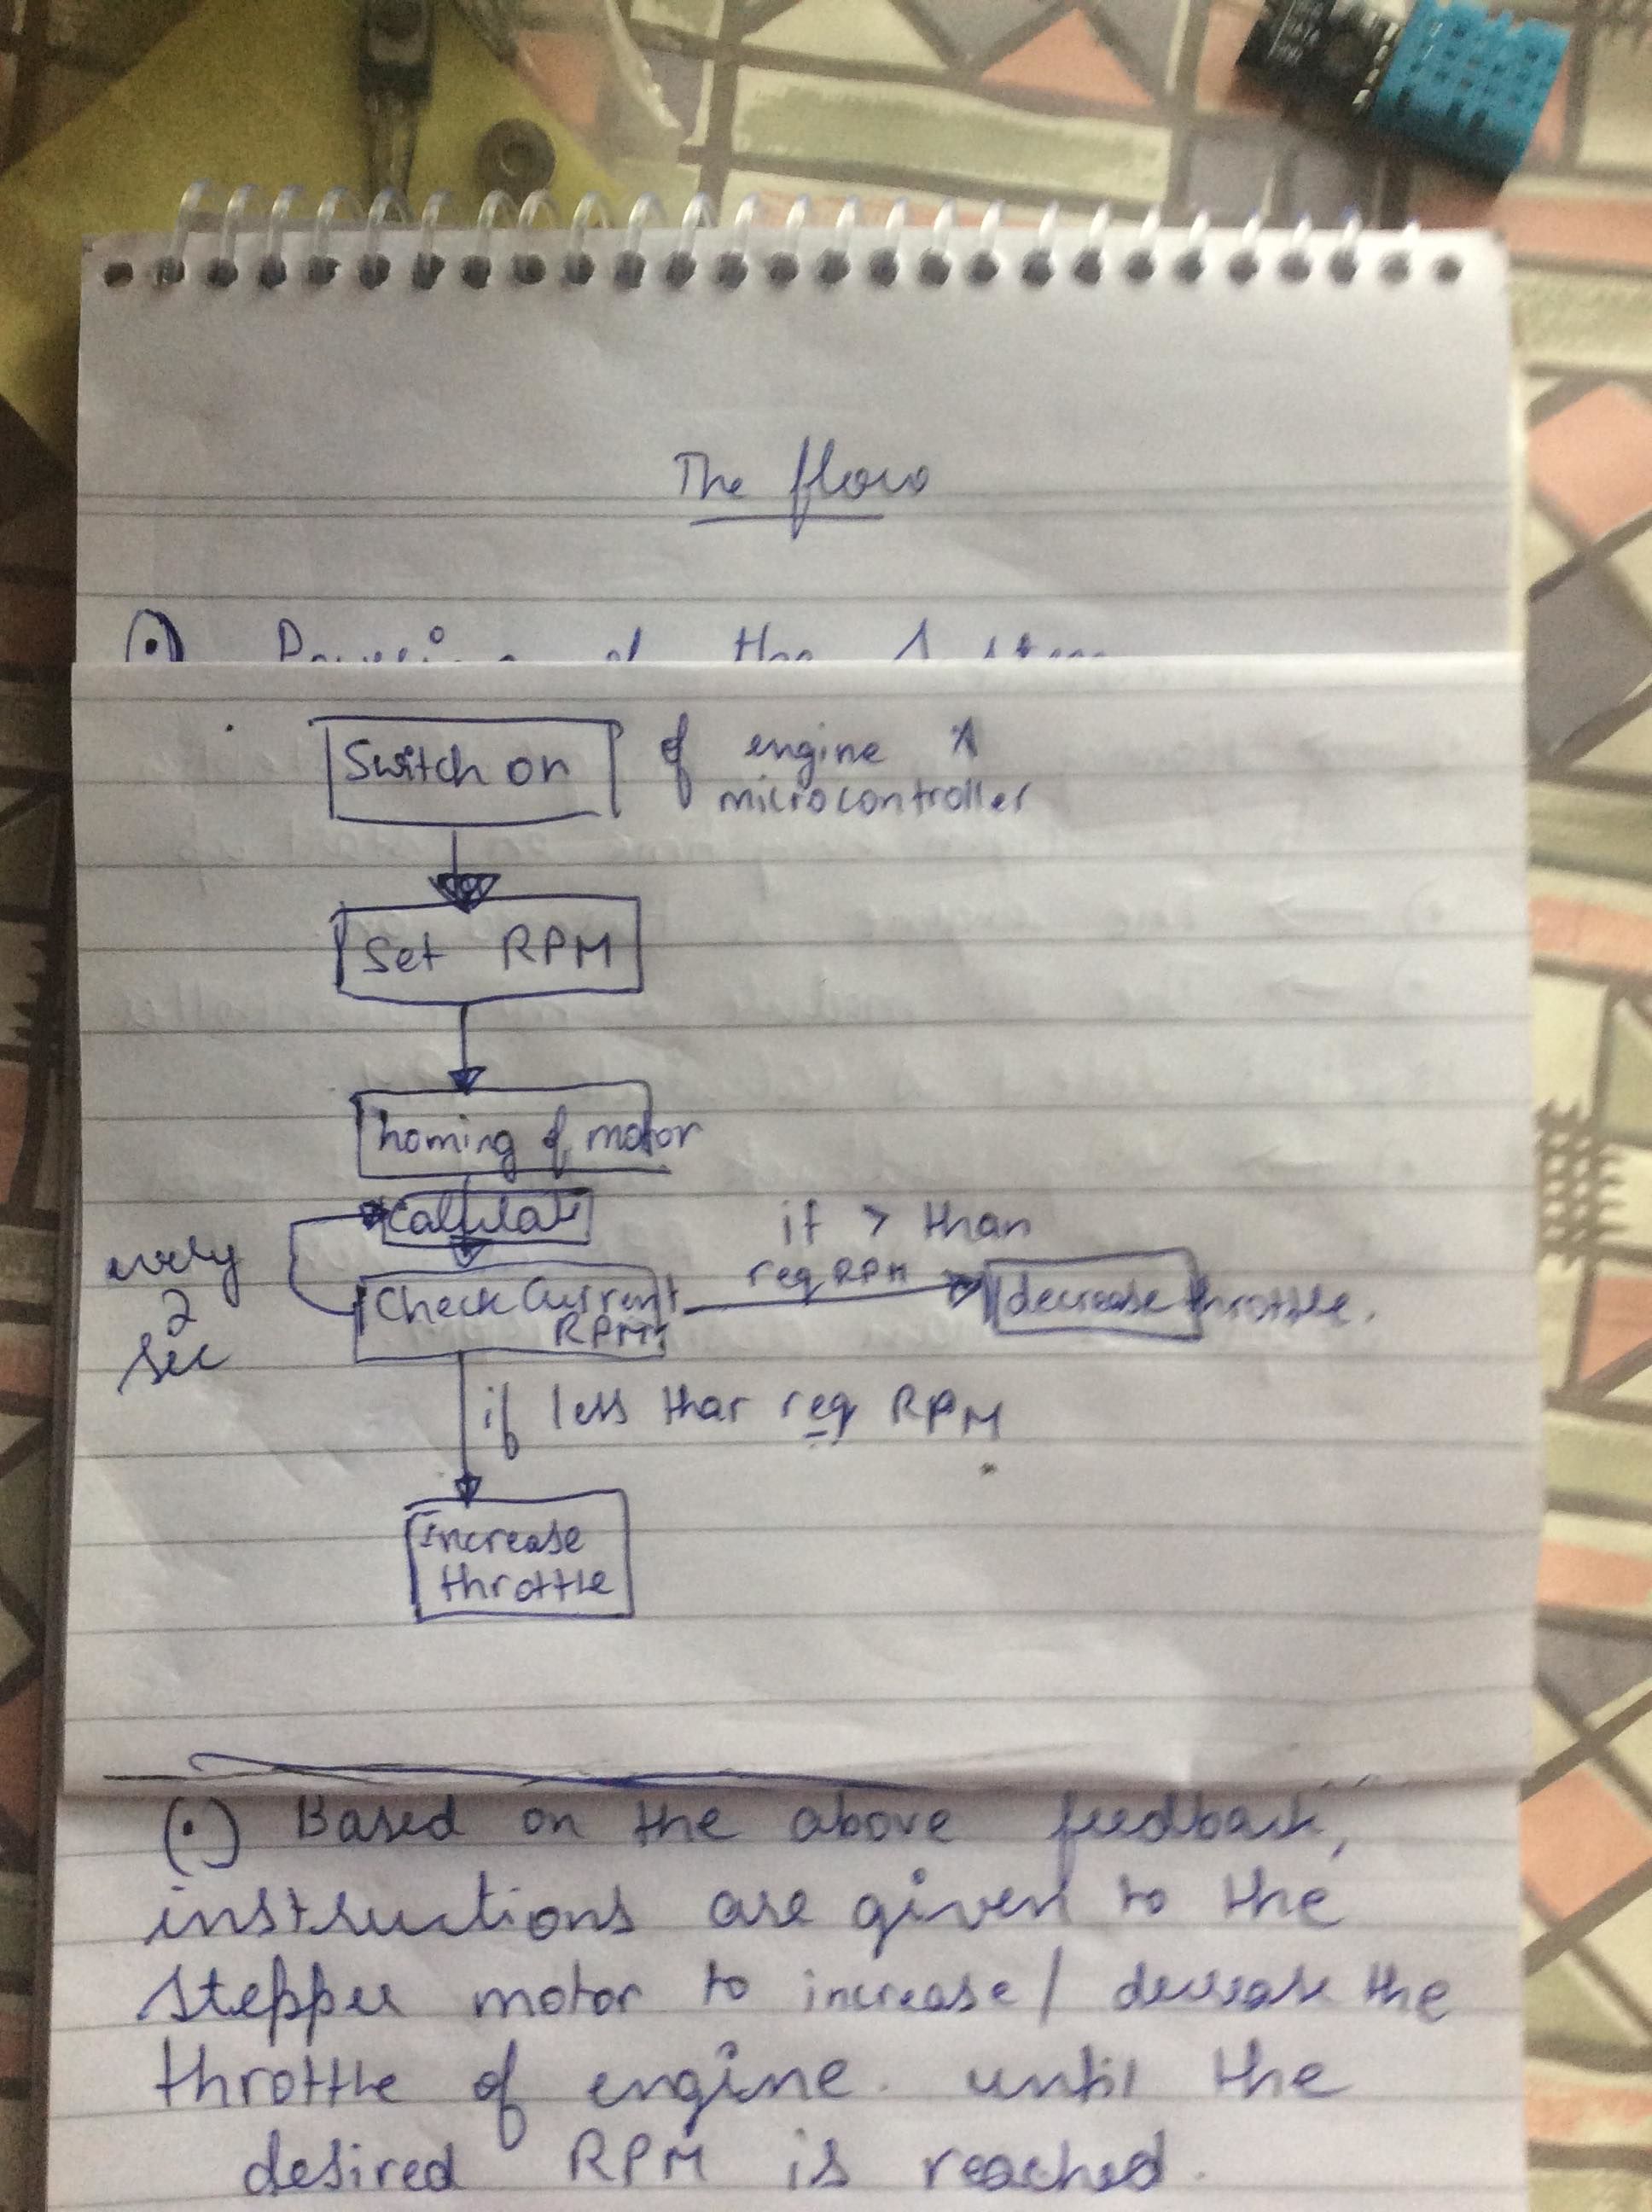 The flow
of the
Switch on of engine &
microcontroller
Set RPM
homing of motor
Calculate
if > than
req RPM
every
2
sec
Check Current
RPM
decrease throttle.
if less than req RPM
increase
throttle
(•) Based on the above feedback,
instructions are given to the
stepper motor to increase / decrease the
throttle of engine. until the
desired RPM is reached.